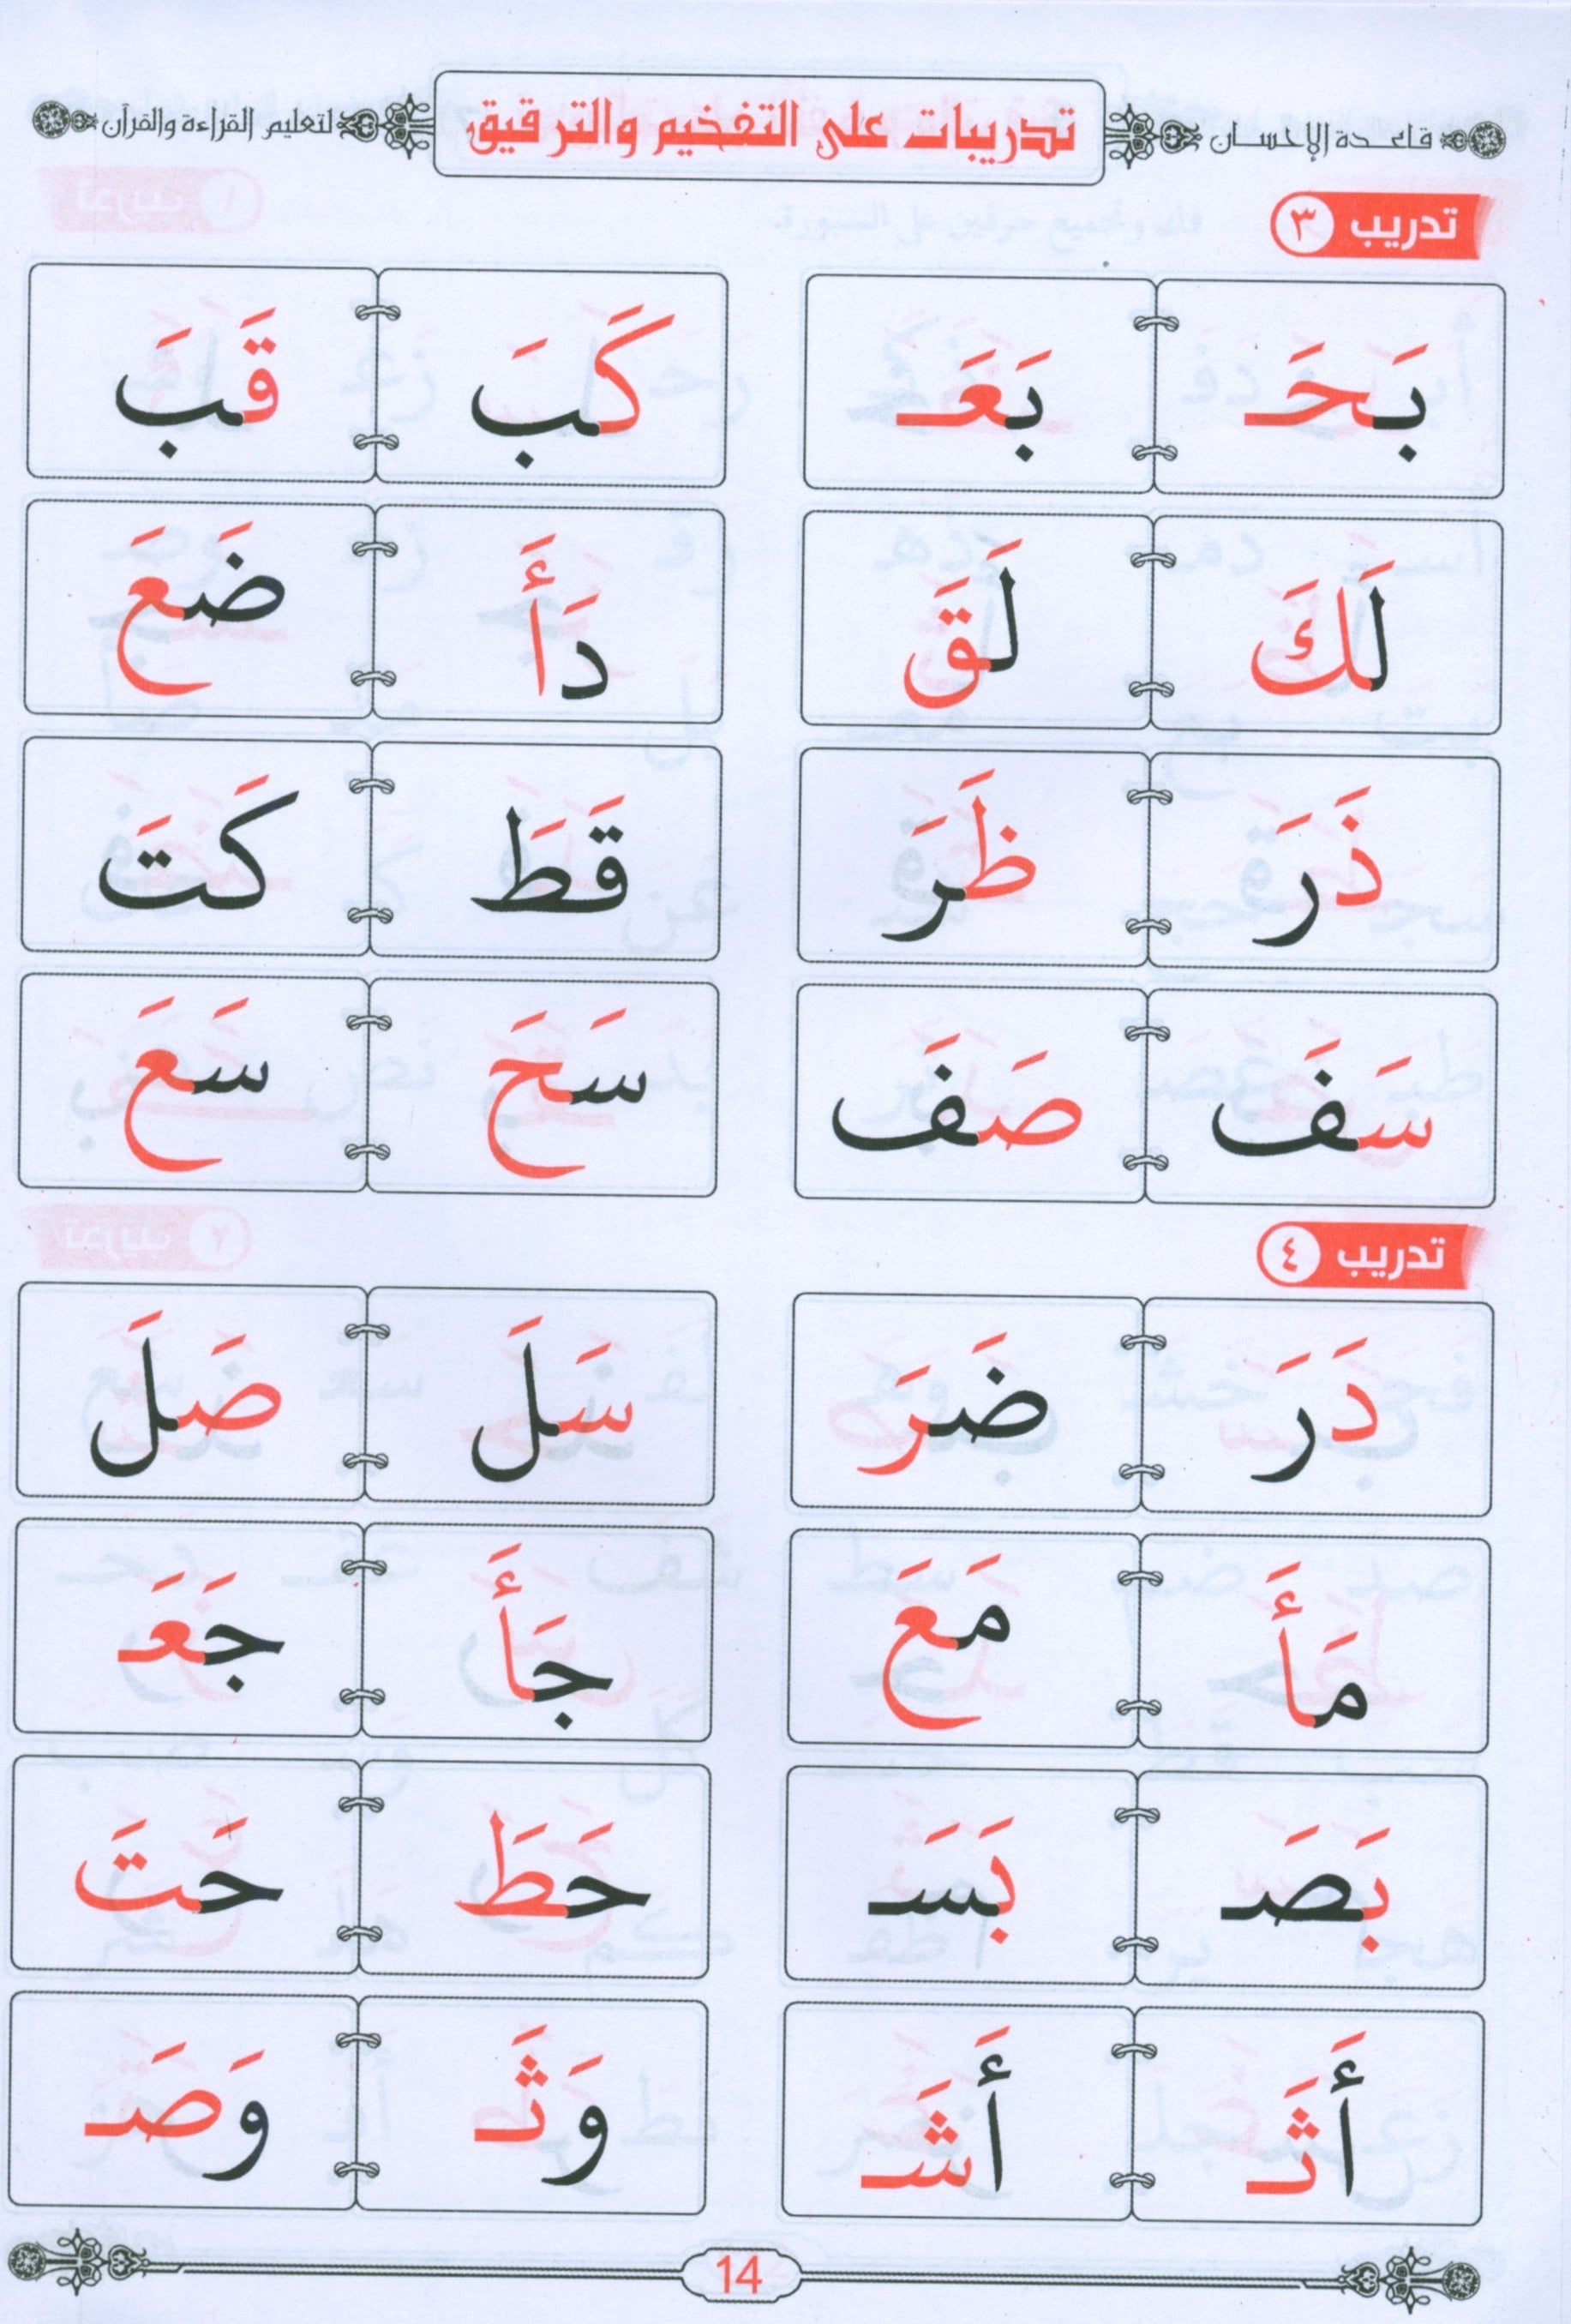 قاعدة الإحسان تدريبات على التفخيم والترقيق لتعليم القراءة والقرآن
تدريب ٣
بَحَـ بَعَـ كَبَ قَبَ
لَكَ لَقَ دَأَ ضَعَ
ذَرَ ظَرَ قَطَ كَتَ
سَفَ صَفَ سَحَ سَعَ
تدريب ٤
دَرَ ضَرَ سَلَ صَلَ
مَأَ مَعَ جَأَ جَعَـ
بَصَـ بَسَـ حَطَ حَتَ
أَثَـ أَشَـ وَثَـ وَصَـ
14